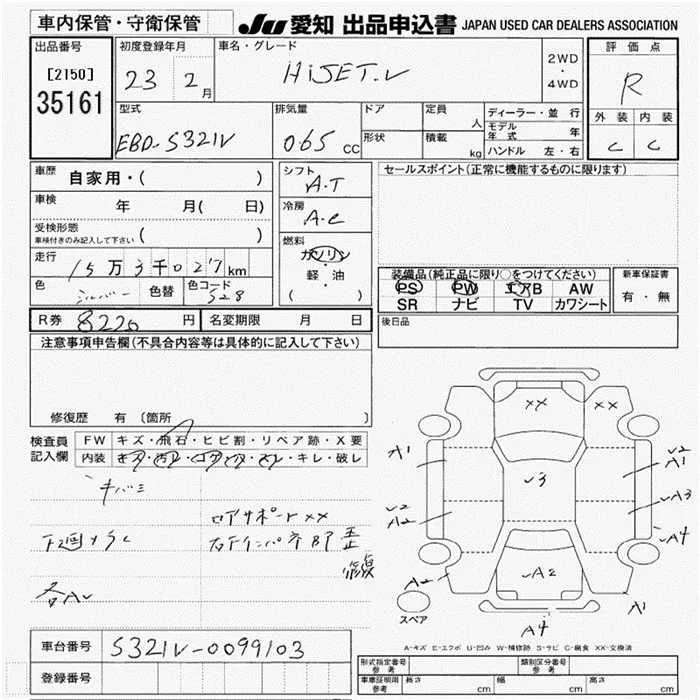 車内保管・守衛保管
JU 愛知 出品申込書 JAPAN USED CAR DEALERS ASSOCIATION
出品番号
[2150]
35161
初度登録年月
23 2月
車名・グレード
HiJET.V
2WD
・
4WD
評価点
R
外装 内装
C C
型式
EBD-S321V
排気量
065 cc
ドア
形状
定員 人
積載 kg
ディーラー・並行
モデル年式 年
ハンドル 左・右
車歴
自家用・( )
車検
年 月( 日)
受検形態
車検付きのみ記入して下さい ( )
走行
15万3千027km
色 シルバー 色替 色コード S28
シフト
A.T
冷房
A.C
燃料
ガソリン
・
軽・油
( )
セールスポイント(正常に機能するものに限ります)
装備品(純正品に限り○をつけてください)
PS PW エアB AW
SR ナビ TV カワシート
新車保証書
有・無
R券 8220円 名変期限 月 日
後日品
注意事項申告欄(不具合内容等は具体的に記入して下さい)
修復歴 有〔箇所 〕
検査員
記入欄
FW キズ・飛石・ヒビ割・リペア跡・X要
内装 キズ・汚レ・コゲ・穴・スレ・キレ・破レ
キバミ
ロアサポートXX
下廻サビ
右インパネ部歪
修复
各AU
XX XX
A1
U2
A1
U3
U2
A2
A3
A4
A2
UA2
A1
A4
スペア
A-キズ E-エクボ U-凹み W-補修跡 S-サビ C-腐食 XX-交換済
車台番号 S321V-0099103
登録番号
型式指定番号
参考
類別区分番号
参考
車庫証明用
参考
長さ cm 幅 cm 高さ cm